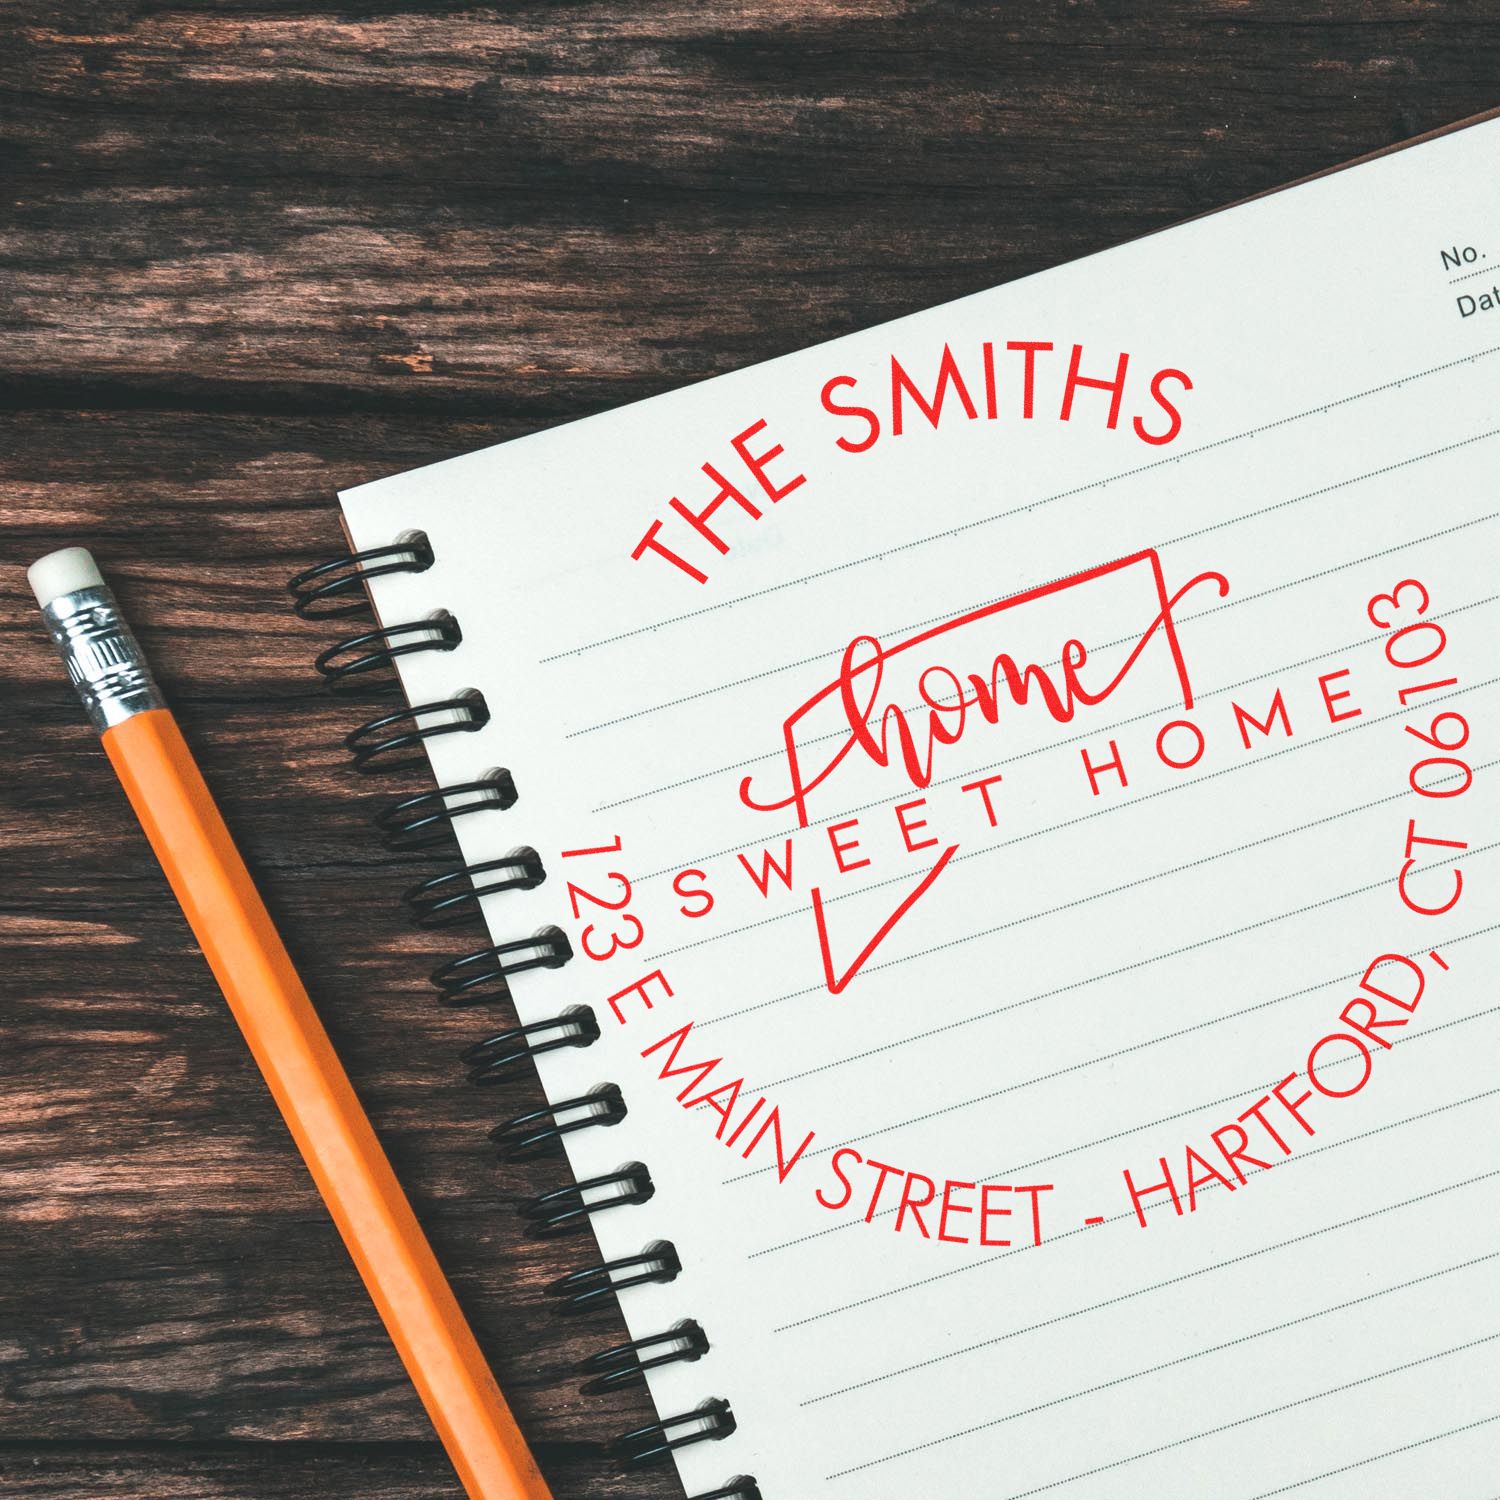 No.
Dat
THE SMITHS
home
SWEET HOME
123 E MAIN STREET - HARTFORD, CT 06103